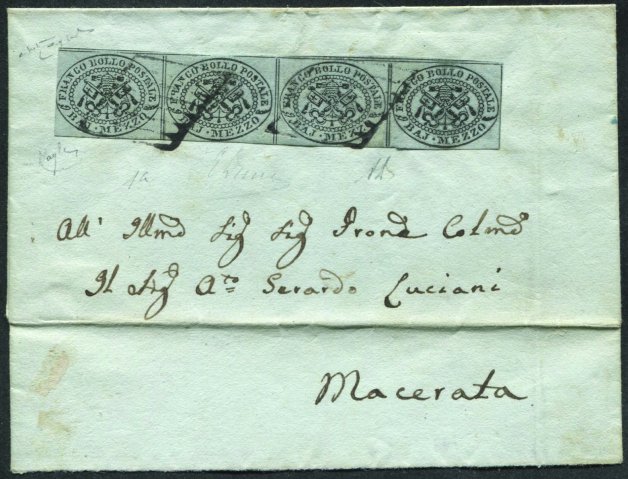 FRANCO BOLLO POSTALE BAJ. MEZZO
FRANCO BOLLO POSTALE BAJ. MEZZO
FRANCO BOLLO POSTALE BAJ. MEZZO
FRANCO BOLLO POSTALE BAJ. MEZZO
1a
All' Illmo Sig Sig Prone Colmo
Il Sig Ato Serardo Luciani
Macerata